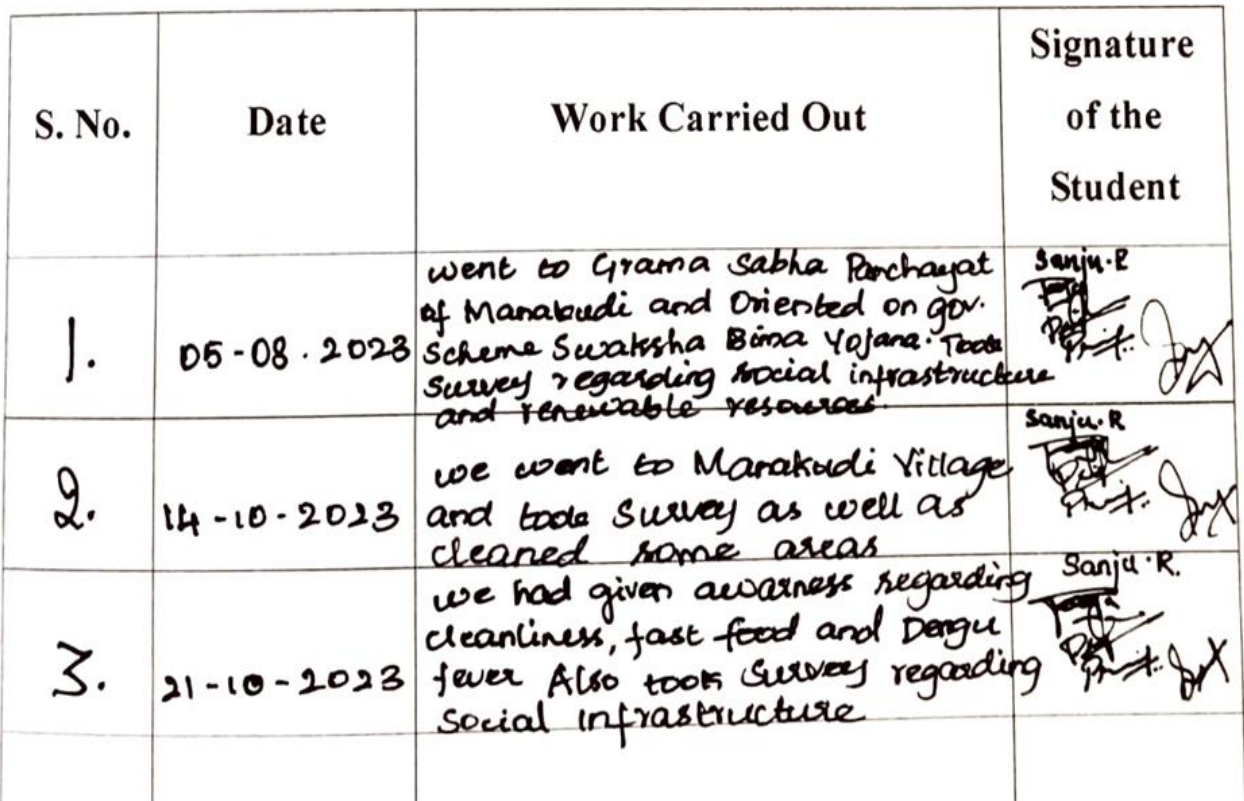 S. No.
Date
Work Carried Out
Signature
of the
Student
1.
05-08.2023
went to Grama Sabha Panchayat
of Manakudi and Oriented on gov.
Scheme Swaksha Bima Yojana. Took
Survey regarding social infrastructure
and renewable resources.
Sanju.R
2.
14-10-2023
we went to Manakudi Village
and took Survey as well as
cleaned some areas
Sanju.R
3.
21-10-2023
we had given awarness regarding
cleanliness, fast food and Dengu
fever Also took Survey regarding
Social infrastructure
Sanju.R.